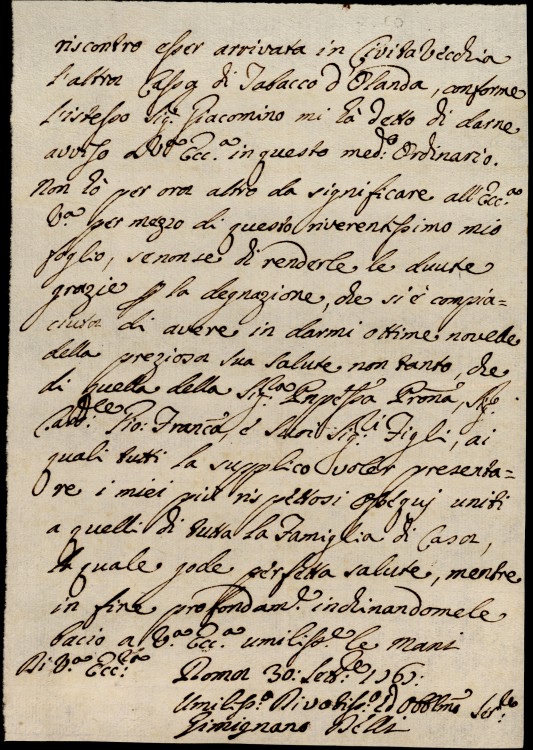 riscontro esser arrivata in CivitaVecchia
l'altra Cassa di Tabacco d'Olanda, conforme
l'istesso Sig.r Giacomino mi hà detto di darne
avviso a V.ra Ecc.a in questo med.o Ordinario.
Non hò per ora altro da significare all'Ecc.a
V.a per mezzo di questo riverentissimo mio
foglio, se non se di renderle le dovute
grazie p la degnazione, che si è compia=
ciuta di avere in darmi ottime novelle
della preziosa sua salute non tanto, che
di quella della Sig.ra Pnpessa Prona, Sig.
Card.le Gio: Franc.o, e suoi Sig.i Figli, ai
quali tutti la supplico voler presenta=
re i miei più rispettosi ossequj uniti
a quelli di tutta la Famiglia di Casa,
la quale gode perfetta salute, mentre
in fine profondam.e inchinandomele
bacio a V.a Ecc.a umiliss.e le mani
Di V.a Ecc.za
Roma 30: Sett.e 1767:
Umiliss.o Divotiss.o ed Obblmo Ser.re
Gimignano Belli